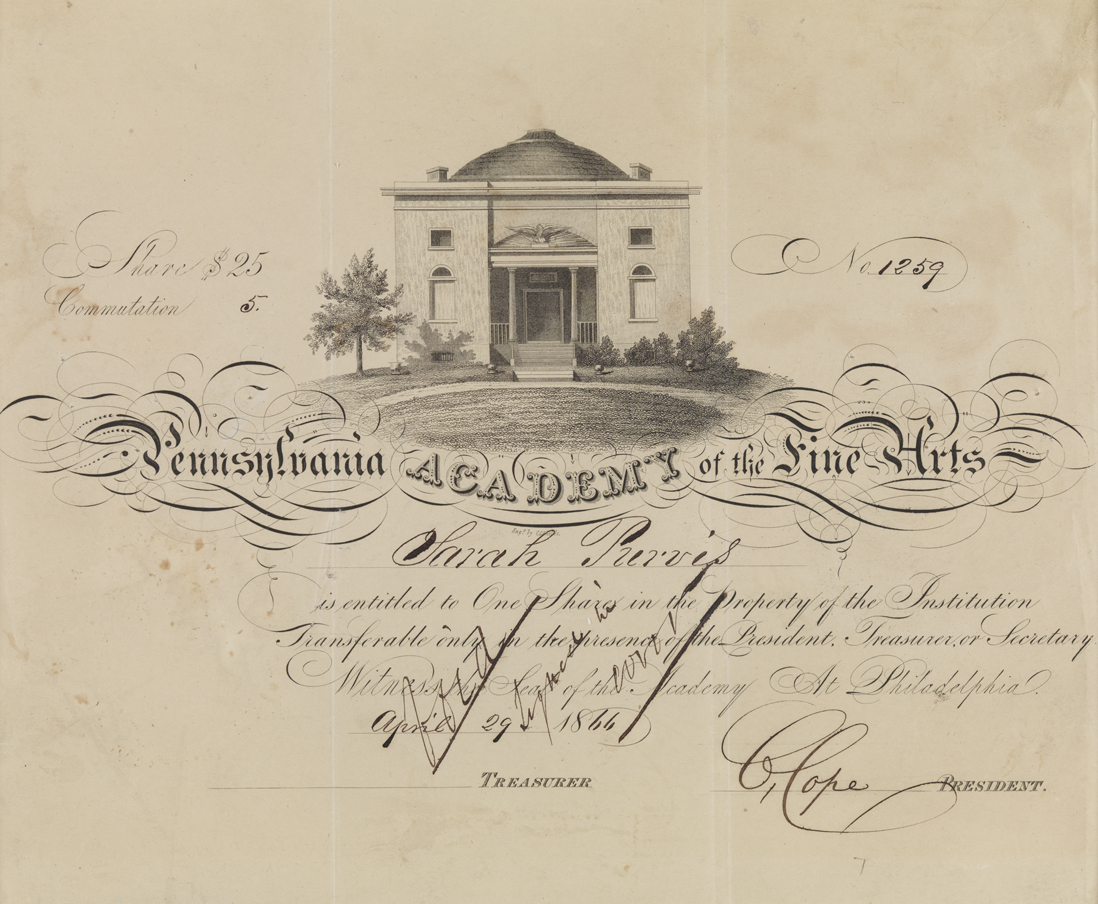 Share $25
No. 1259
Commutation 5.
Pennsylvania ACADEMY of the Fine Arts
Sarah Purvis
is entitled to One Share in the Property of the Institution
Transferable only in the presence of the President, Treasurer, or Secretary
Witness the Seal of the Academy At Philadelphia.
April 29 1864
TREASURER
C, Cope PRESIDENT.